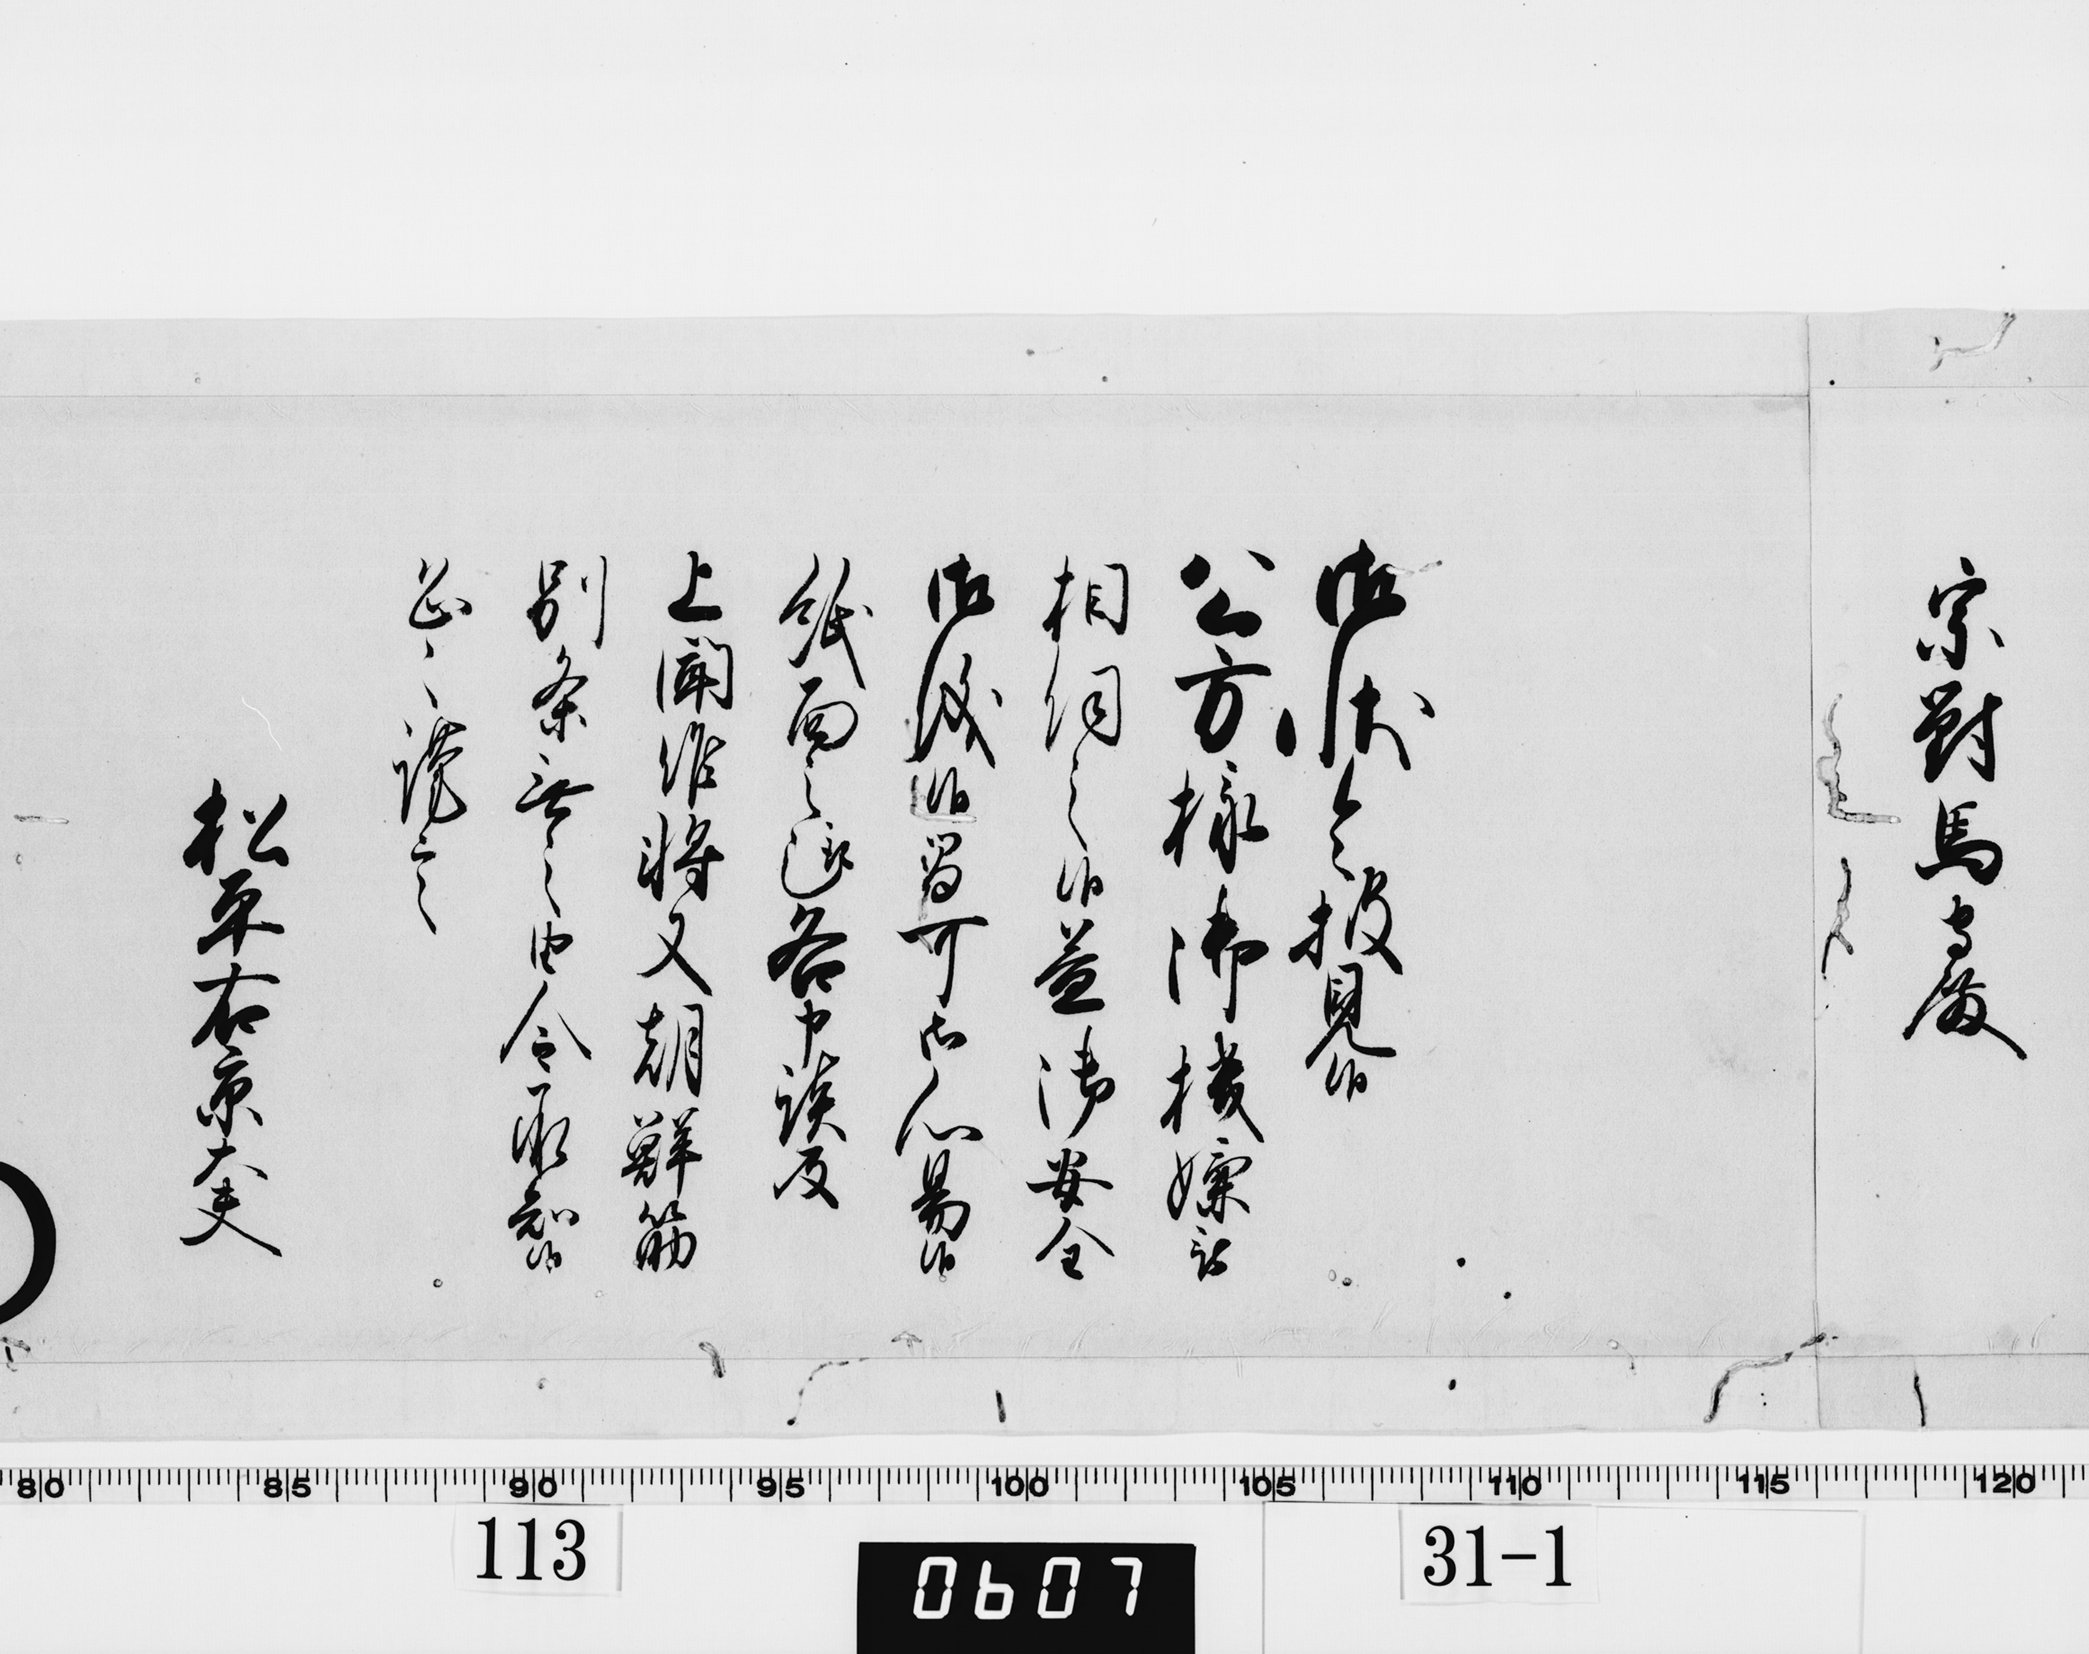 宗對馬守殿
御状令披見候
公方様御機嫌被
相伺之候益御安全
御儀候間可御心易候
紙面之趣各申談及
上聞候将又朝鮮筋
別条無之由令承知候
恐々謹言
松平右京大夫
80 85 90 95 100 105 110 115 120
113
0607
31-1